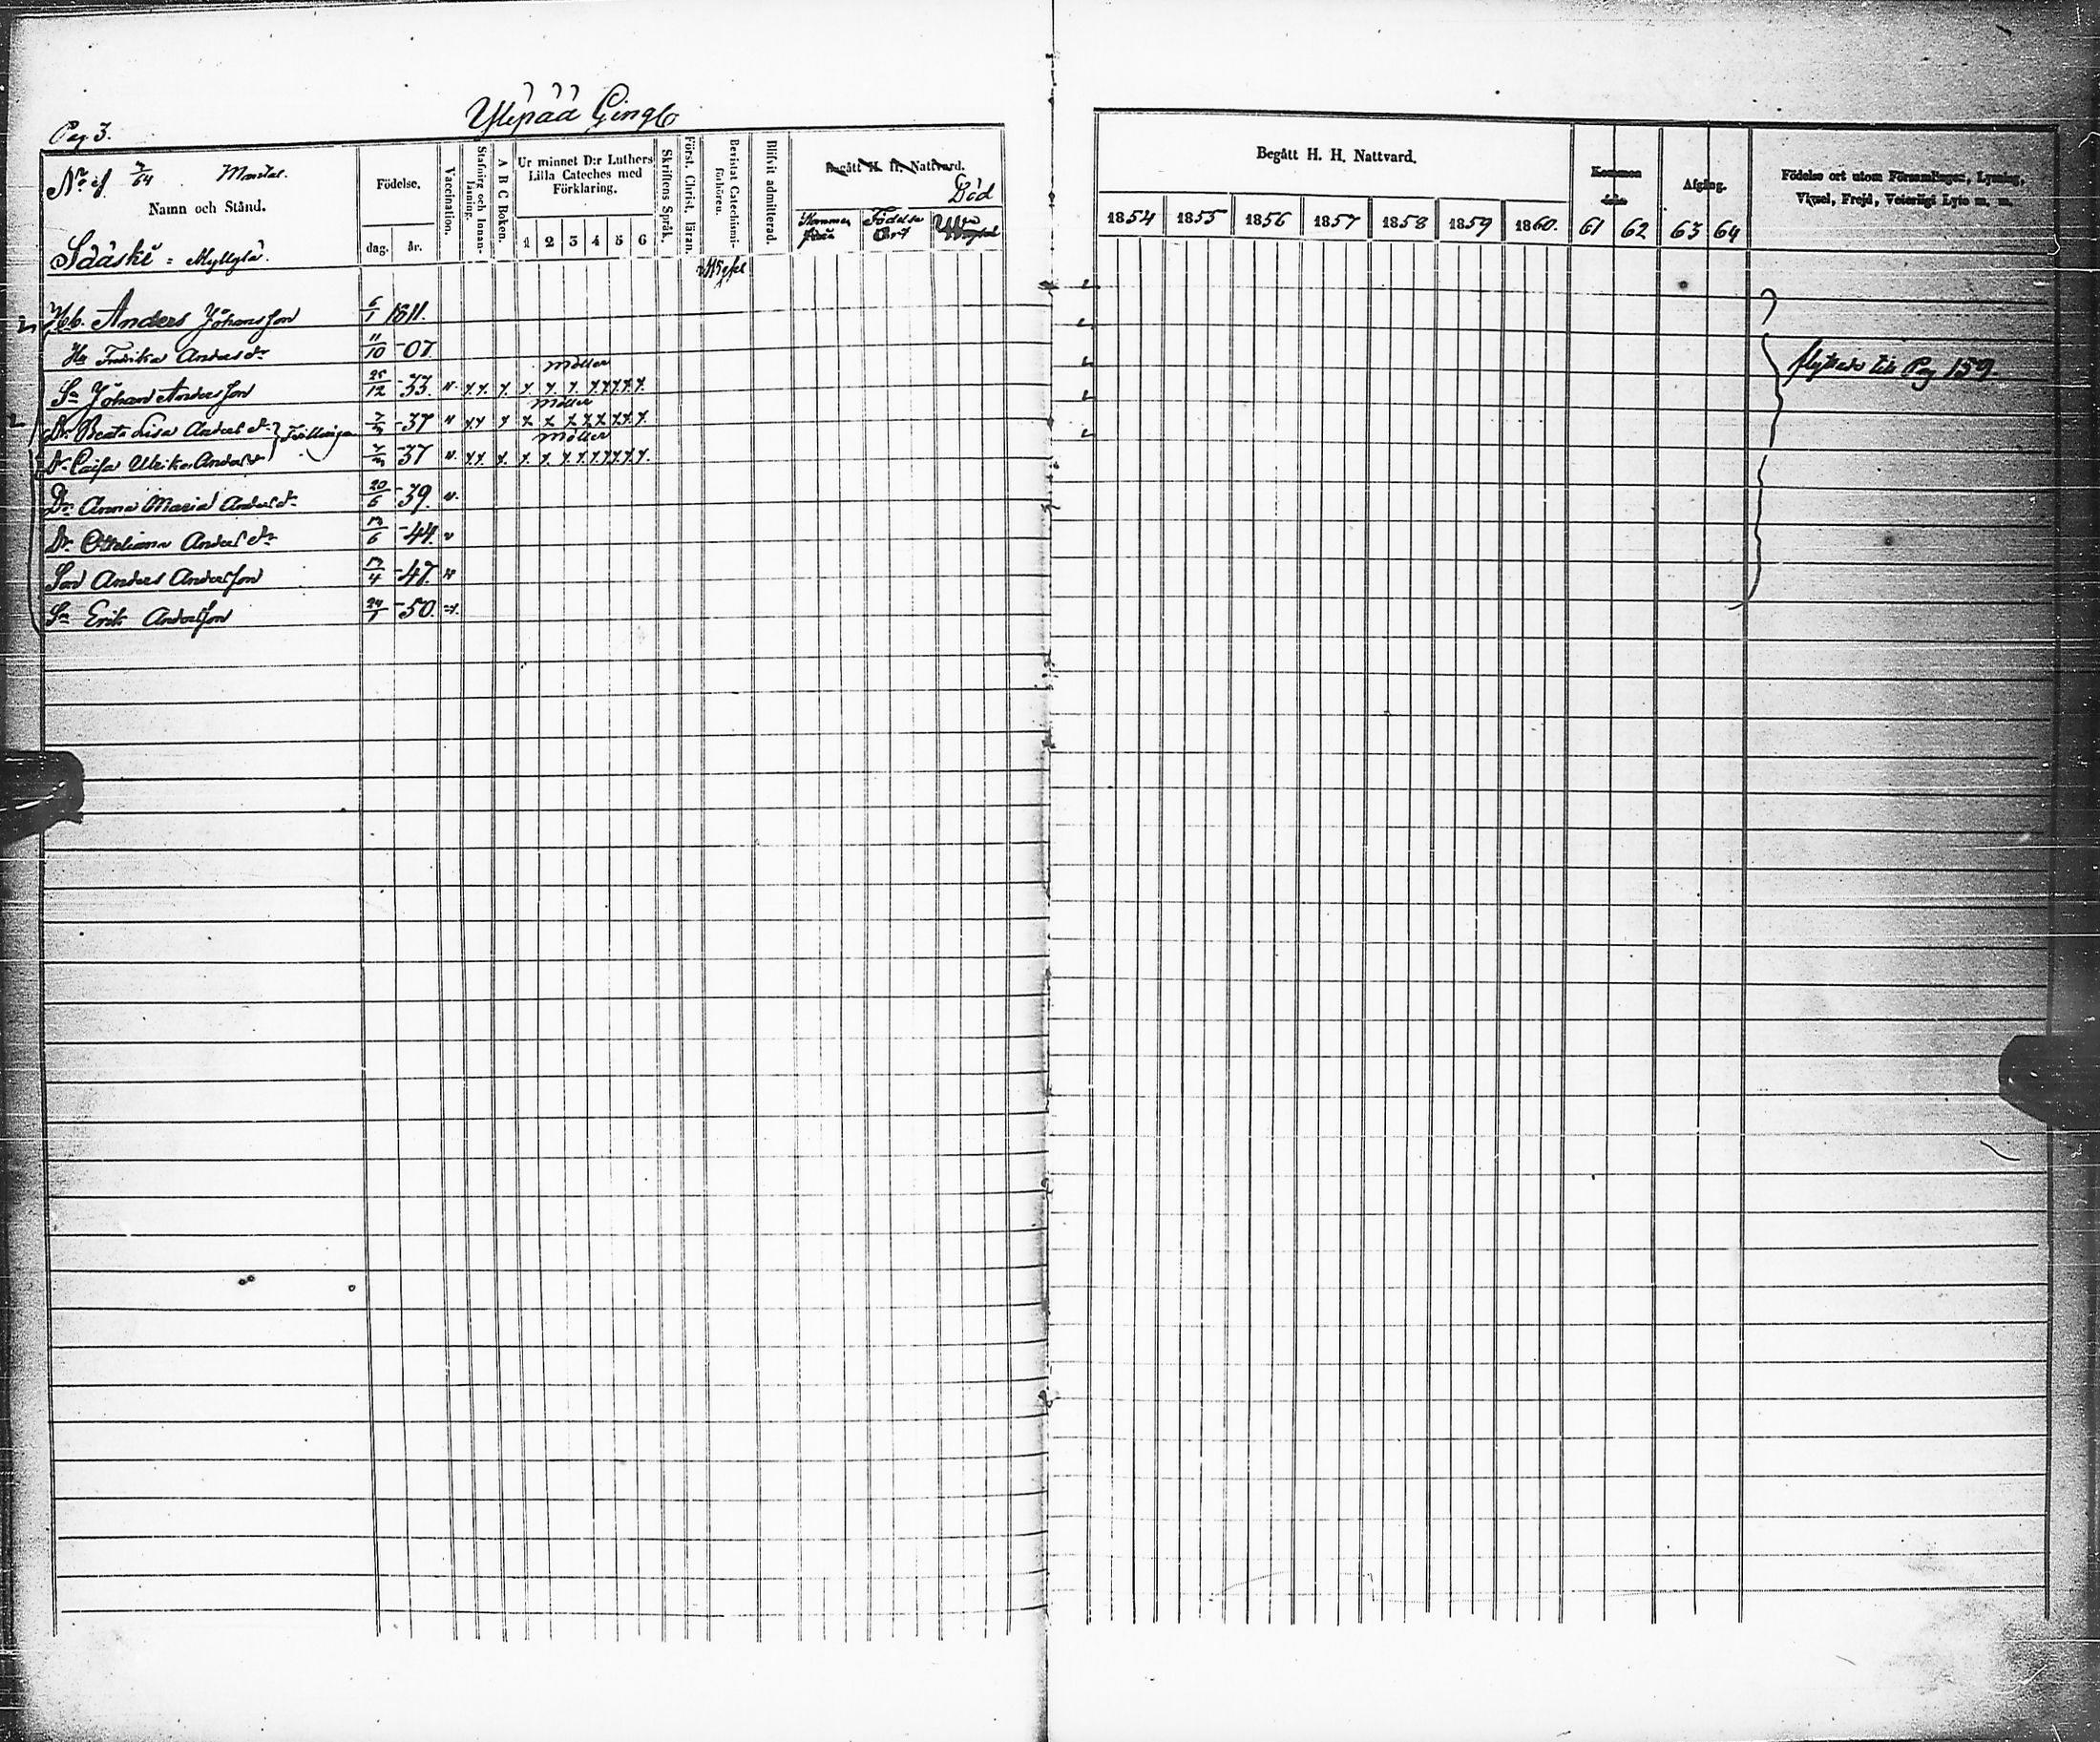 Pag 3.
Ylipää Gingb
No 7/64 Mantal.
Namn och Stånd.
Sääski = Myllylä.
Födelse.
dag. år.
Vaccination.
Stafning och Innan-läsning.
A B C Boken.
Ur minnet D:r Luthers
Lilla Cateches med
Förklaring.
1 2 3 4 5 6
Skriftens Språk.
Först. Christ. läran.
Bevistat Catechismi-förhören.
Blifvit admitterad.
Begått H. H. Nattvard.
Död
Kommen från
Födelse Ort
Begått H. H. Nattvard.
1854 1855 1856 1857 1858 1859 1860.
Kommen
61 62
Afgång.
63 64
Födelse ort utom Församlingen, Lysning,
Vigsel, Frejd, Veterligt Lyte m. m.
Anders Johansson 6/1 1811.
Hu Fredrika Andersdr 11/10 -07
Möller
Sn Johan Andersson 25/12 -33. v. x x x x x x x x x x x
Möller
Dr Beata Lisa Andersdr Tvillingar 7/3 -37 v x x x x x x x x x x x
Möller
Dr Caisa Ulrika Andersdr 7/3 -37 v. x x x x x x x x x x x
Dr Anna Maria Andersdr 20/6 -39. v.
Dr Ottiliana Andersdr 13/6 -44. v
Son Anders Andersson 13/4 -47. v
Sn Erik Andersson 24/1 -50. v.
flyttade till Pag 159.